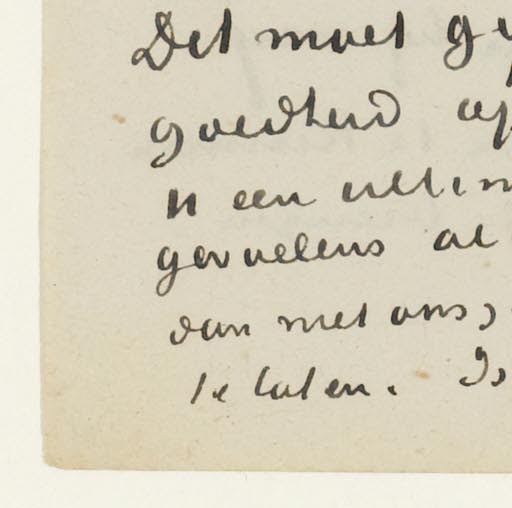 Det moet
goedheid op
U een ultim
gevoelens al
dan met ons,
te laten. Is